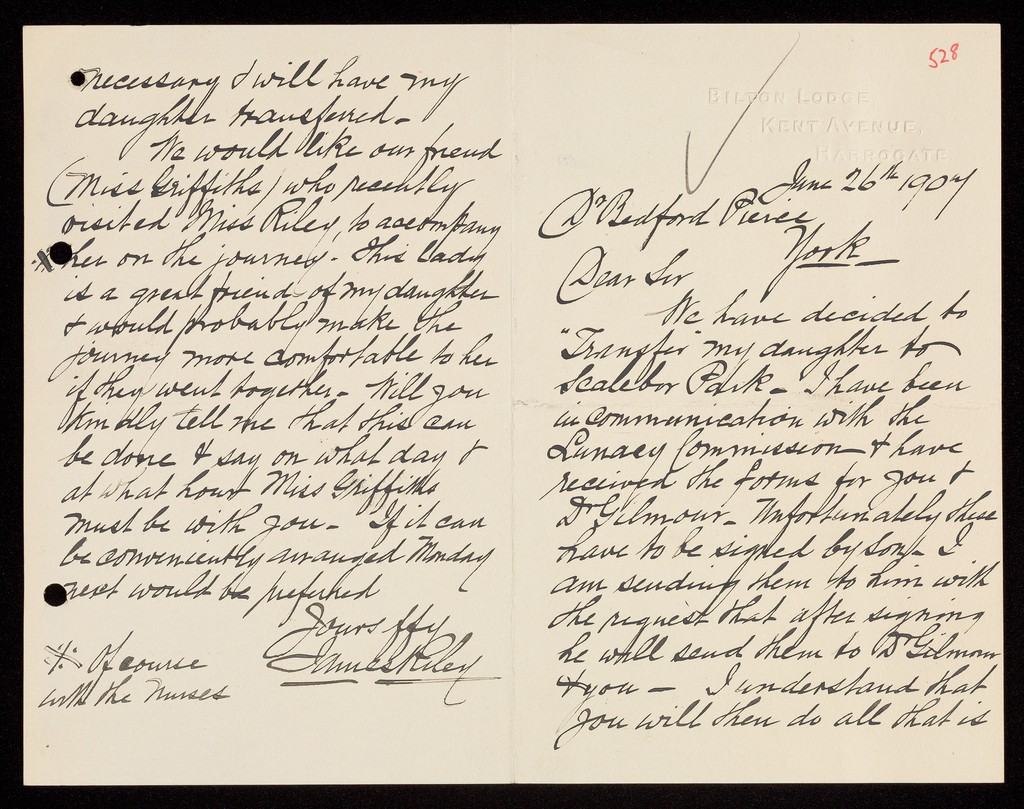 528
BILTON LODGE
KENT AVENUE,
HARROGATE
June 26th 1907
Dr Bedford Pierce
York
Dear Sir
We have decided to
"Transfer" my daughter to
Scalebor Park - I have been
in communication with the
Lunacy Commission & have
received the forms for you &
Dr Gilmour - Unfortunately these
have to be signed by son - I
am sending them to him with
the request that after signing
he will send them to Dr Gilmour
& you - I understand that
you will then do all that is
necessary & will have my
daughter transferred -
We would like our friend
(Miss Griffiths) who recently
visited Miss Riley, to accompany
her on the journey - This lady
is a great friend of my daughter
& would probably make the
journey more comfortable to her
if they went together - Will you
kindly tell me that this can
be done & say on what day &
at what hour Miss Griffiths
must be with you - If it can
be conveniently arranged Monday
next would be preferred
Yours ffy
James Riley
Of course
with the nurses